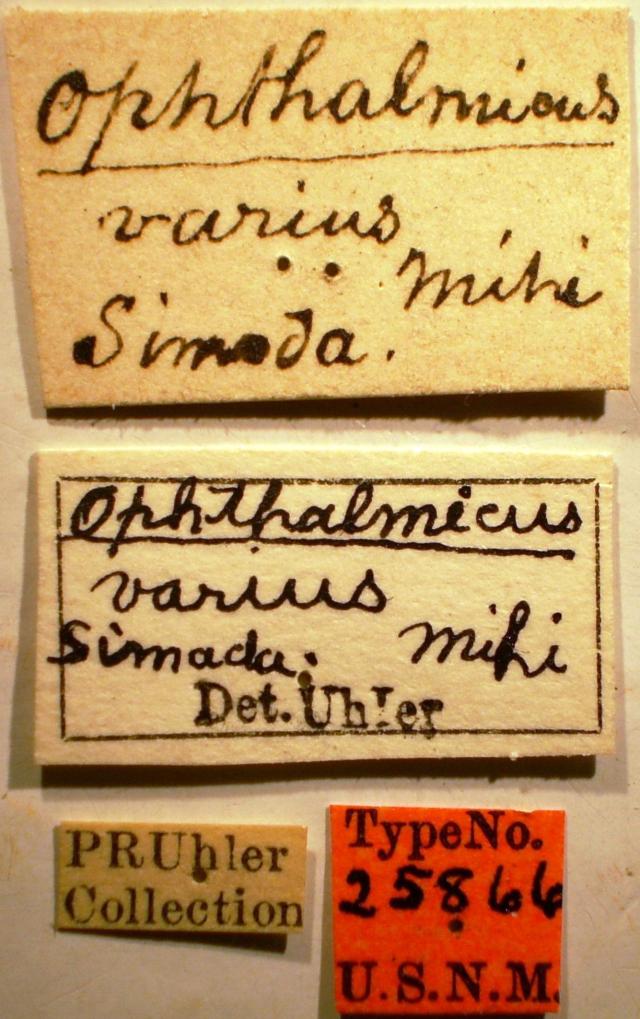 Ophthalmicus
varius
Mihi
Simoda.
Ophthalmicus
varius
Simada. Mihi
Det. Uhler
PRUhler
Collection
TypeNo.
25866
U.S.N.M.